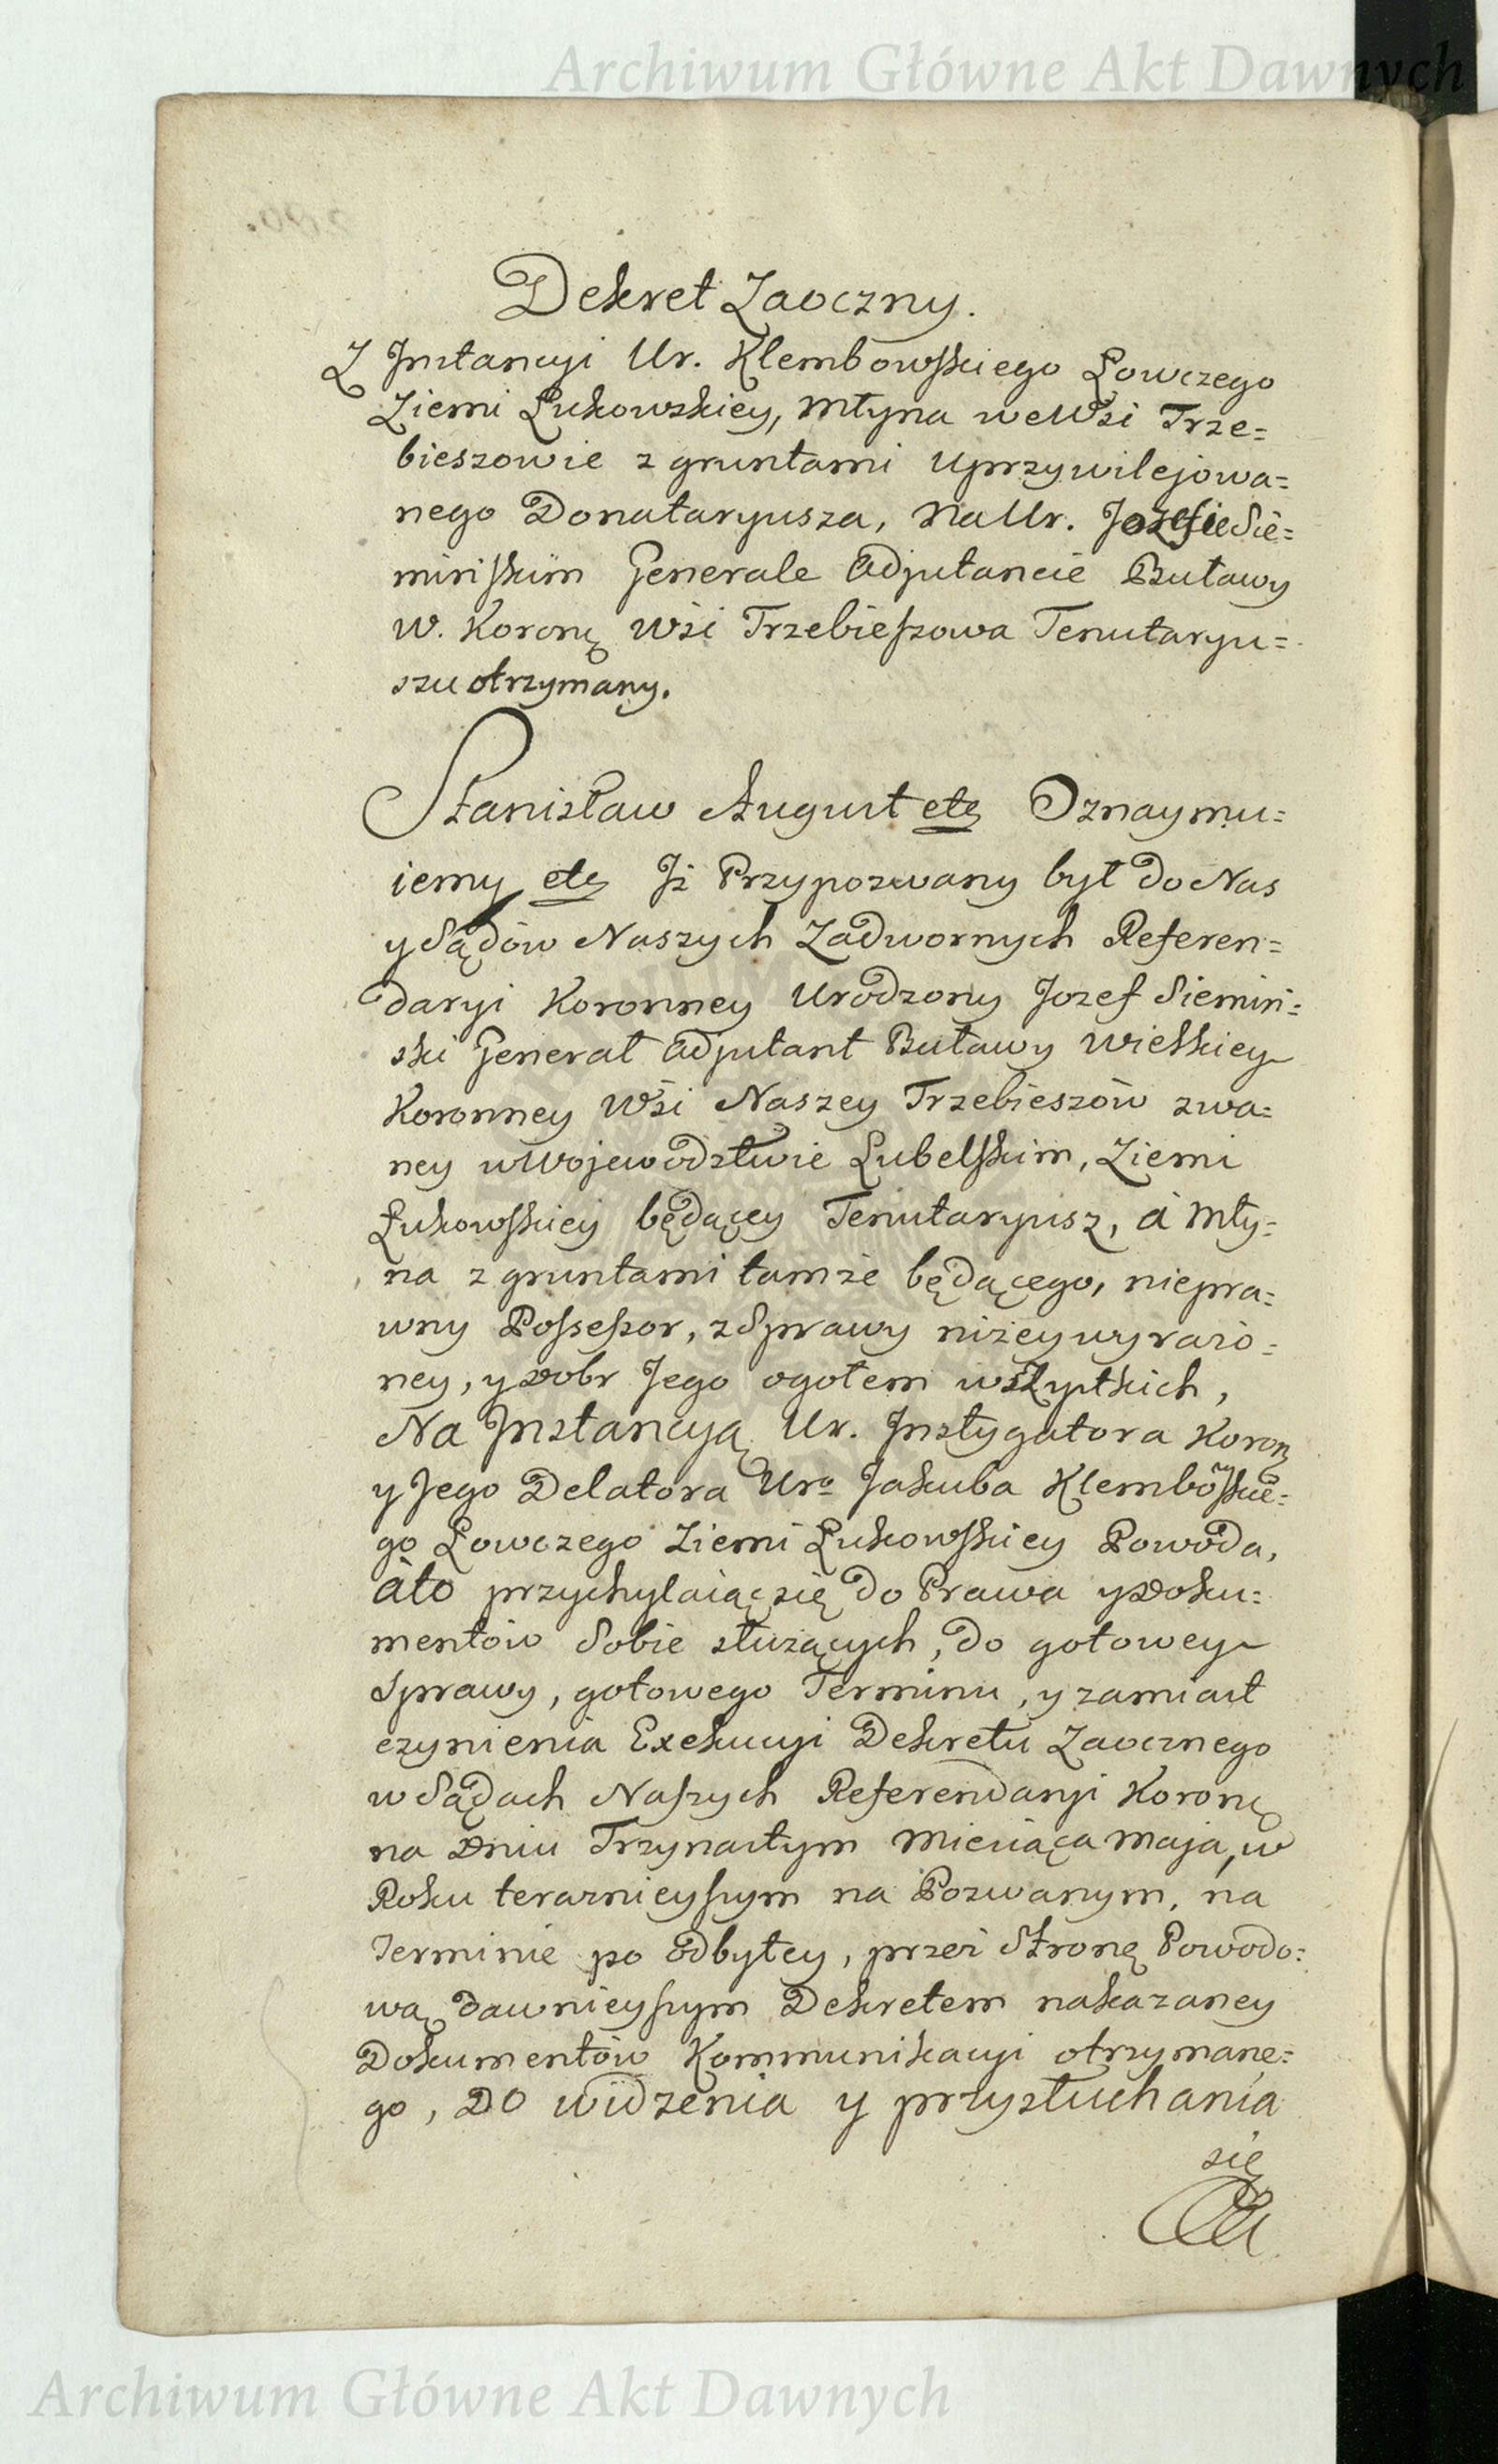 Archiwum Główne Akt Dawnych
Dekret Zaoczny.
Z Instancyi Ur. Klembowskiego Łowczego
Ziemi Łukowskiey, Młyna we Wsi Trze=
bieszowie z gruntami Uprzywilejowa=
nego Donataryusza, Na Ur. Jozefie Sie=
mińskim Generale Adjutancie Buławy
W. Koronę Wsi Trzebieszowa Tenutaryu=
szu otrzymany.
Stanisław August etc Oznaymu=
iemy etc Iż Przypozwany był do Nas
y Sądów Naszych Zadwornych Referen=
daryi Koronney Urodzony Jozef Siemiń=
ski Generał Adjutant Buławy Wielkiey
Koronney Wsi Naszey Trzebieszów zwa=
ney w Wojewodztwie Lubelskim, Ziemi
Łukowskiey będącey Tenutaryusz, á Mły=
na z gruntami tamże będącego, niepra=
wny Possessor, z Sprawy niżey wyrażo=
ney, y Dobr Jego ogołem wszystkich,
Na Instancyą Ur. Instygatora Koron
y Jego Delatora Uro Jakuba Klembowskie=
go Łowczego Ziemi Łukowskiey Powoda,
áto przychylaiąc się do Prawa y Doku=
mentów Sobie służących, do gotowey
Sprawy, gotowego Terminu, y zamiast
czynienia Exekucyi Dekretu Zaocznego
w Sądach Naszych Referendaryi Koronę
na Dniu Trzynastym Miesiąca Maja, w
Roku teraznieyszym na Pozwanym, na
Terminie po odbytey, przez Stronę Powodo=
wą dawnieyszym Dekretem nakazaney
Dokumentów Kommunikacyi otrzymane=
go, DO widzenia y przysłuchania
się
Archiwum Główne Akt Dawnych